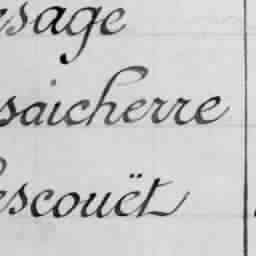 sage
saicherre
escouët